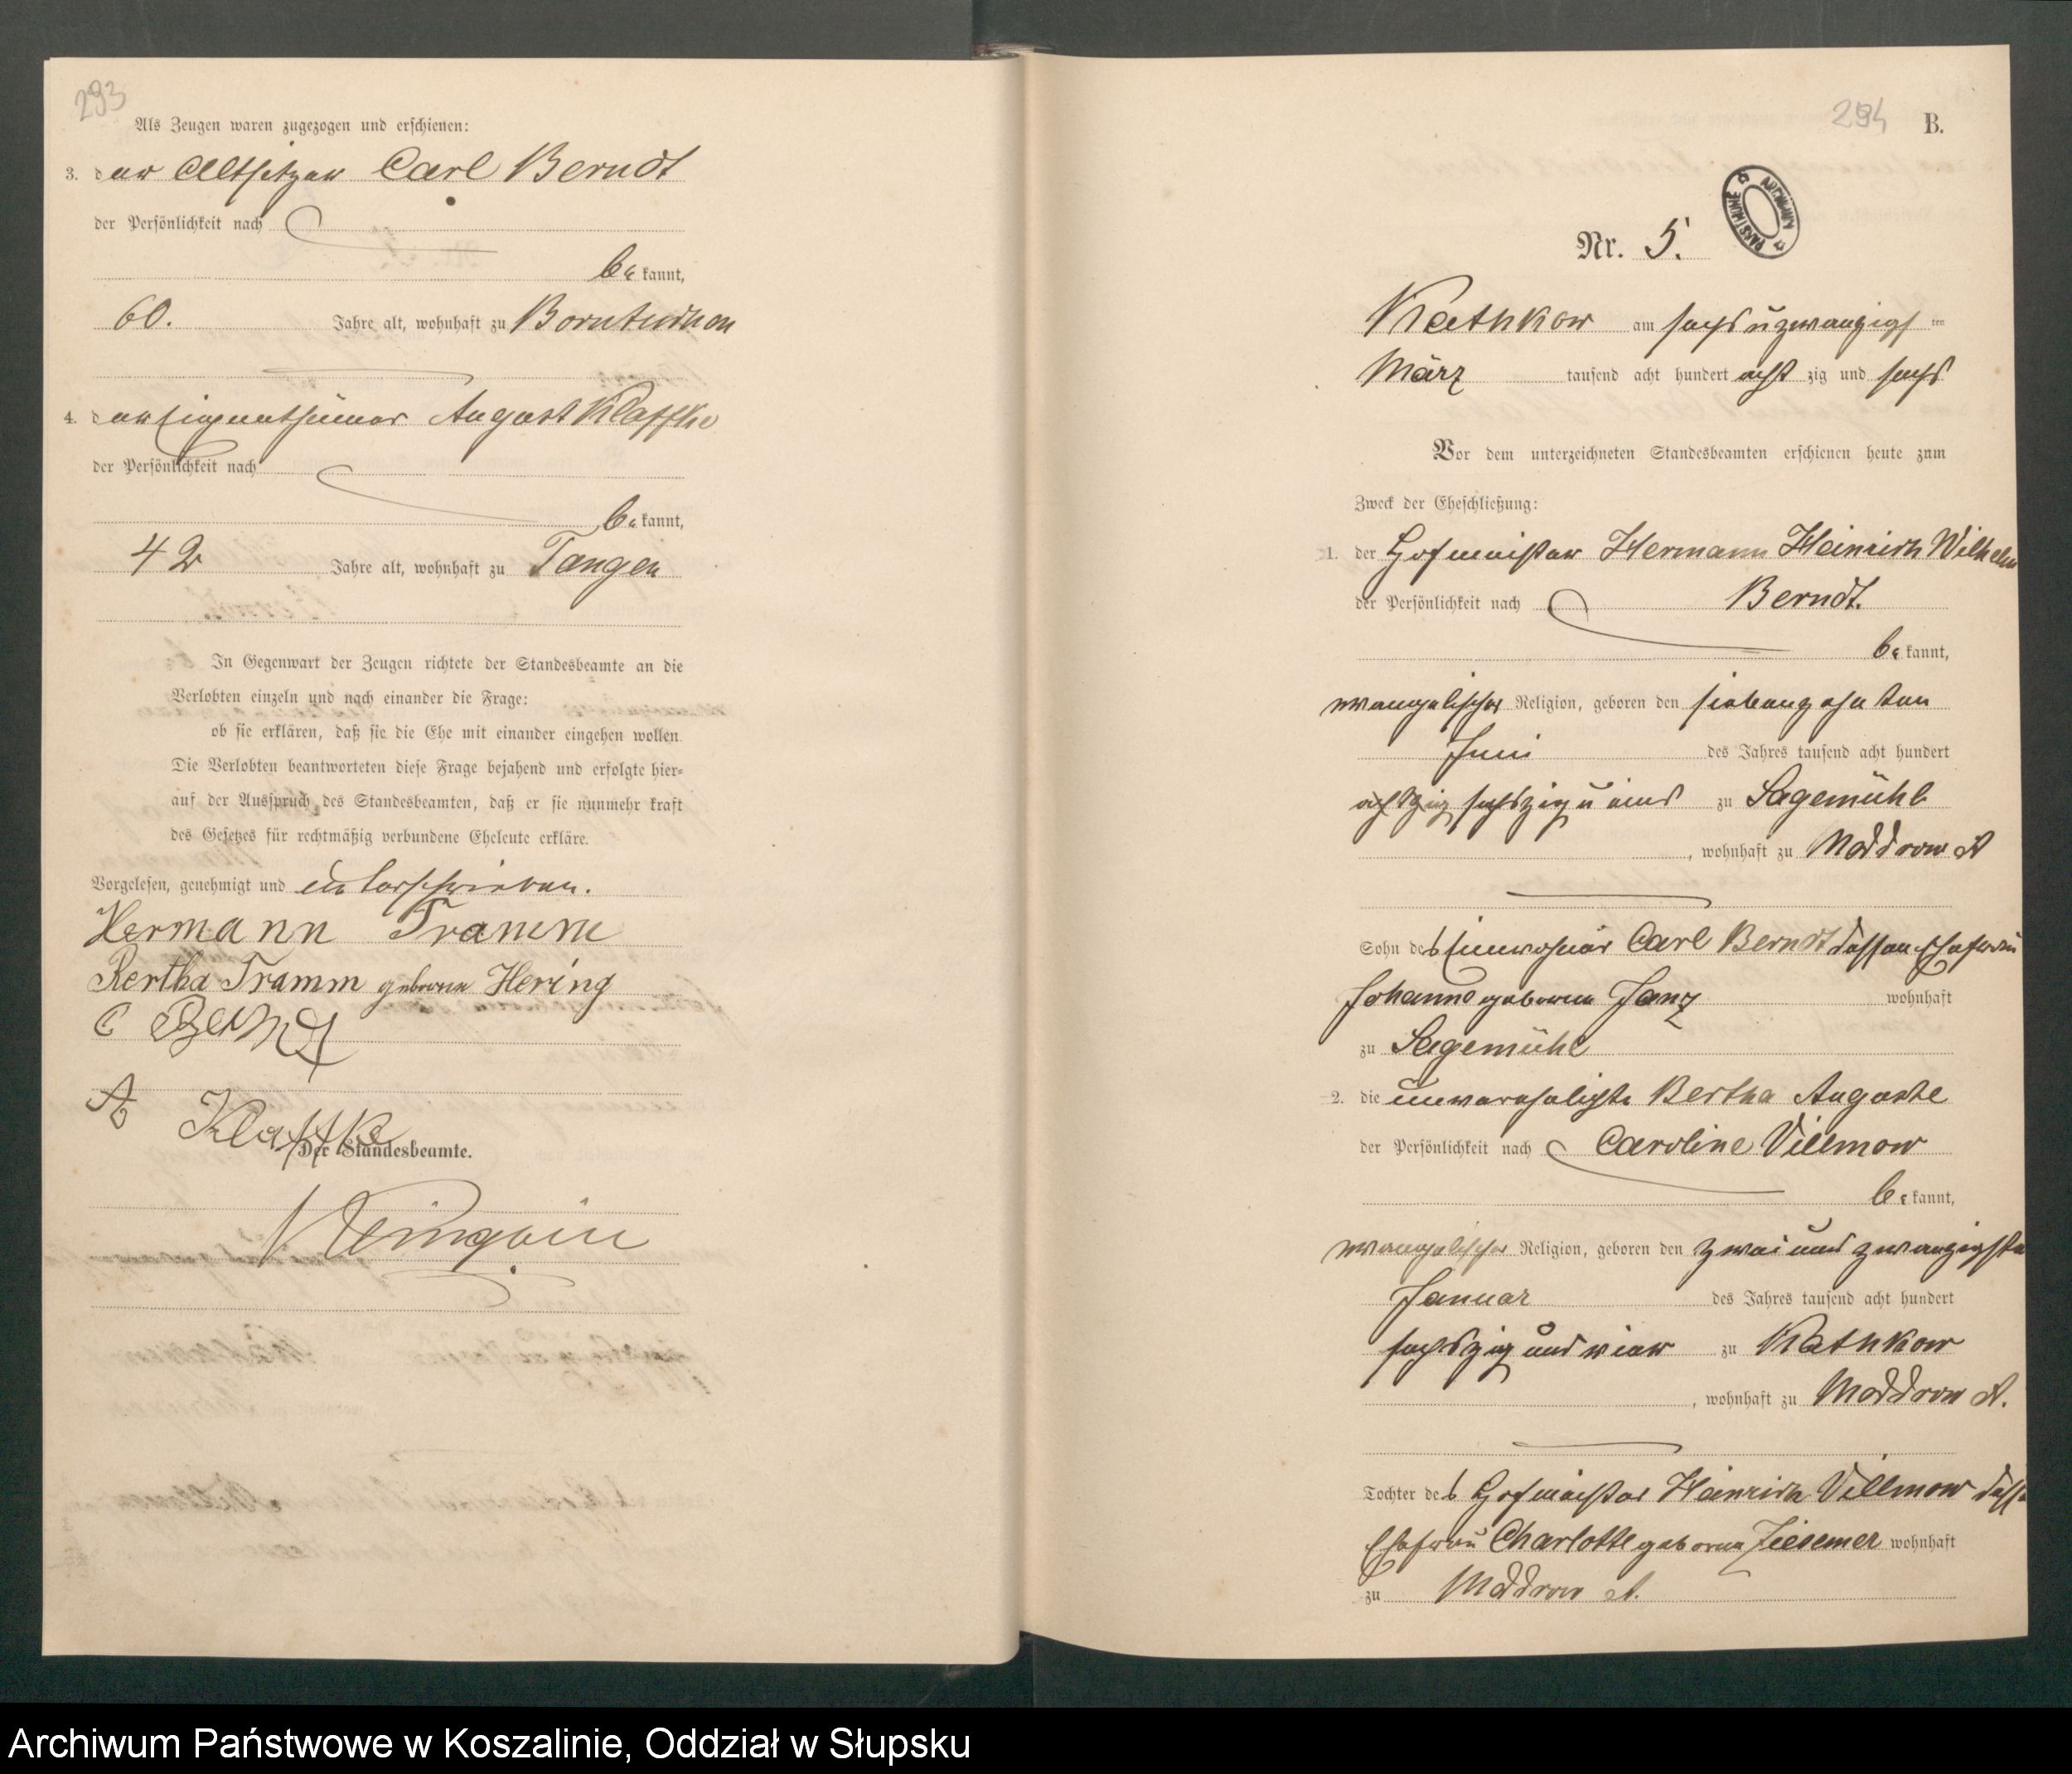 293
Als Zeugen waren zugezogen und erschienen:
3. der Altsitzer Carl Berndt
der Persönlichkeit nach
bekannt,
60. Jahre alt, wohnhaft zu Borntuchen
4. der Eigenthümer August Klaffke
der Persönlichkeit nach
bekannt,
42 Jahre alt, wohnhaft zu Tangen
In Gegenwart der Zeugen richtete der Standesbeamte an die
Verlobten einzeln und nach einander die Frage:
ob sie erklären, daß sie die Ehe mit einander eingehen wollen.
Die Verlobten beantworteten diese Frage bejahend und erfolgte hier-
auf der Ausspruch des Standesbeamten, daß er sie nunmehr kraft
des Gesetzes für rechtmäßig verbundene Eheleute erkläre.
Vorgelesen, genehmigt und unterschrieben.
Hermann Tramm
Bertha Tramm geborene Hering
C Berndt
A Klaffke
Der Standesbeamte.
294 B.
ARCHIWUM PAŃSTWOWE
Nr. 5.
Kathkow am sechs u zwanzigsten
März tausend acht hundert acht zig und sechs
Vor dem unterzeichneten Standesbeamten erschienen heute zum
Zweck der Eheschließung:
1. der Hofmeister Hermann Heinrich Wilhelm
der Persönlichkeit nach Berndt.
bekannt,
evangelischer Religion, geboren den siebenzehnten
Juni des Jahres tausend acht hundert
achtzig sechszig u eins zu Sagemühl
, wohnhaft zu Moddrow A
Sohn des Einwohner Carl Berndt dessen Ehefrau
Johanne geborene Janz wohnhaft
zu Sagemühl
2. die unverehelichte Bertha Auguste
der Persönlichkeit nach Caroline Villmow
bekannt,
evangelischer Religion, geboren den zwei und zwanzigsten
Januar des Jahres tausend acht hundert
sechszig und vier zu Kathkow
, wohnhaft zu Moddrow A.
Tochter des Hofmeister Heinrich Villmow dessen
Ehefrau Charlotte geborene Ziesemer wohnhaft
zu Moddrow A.
Archiwum Państwowe w Koszalinie, Oddział w Słupsku